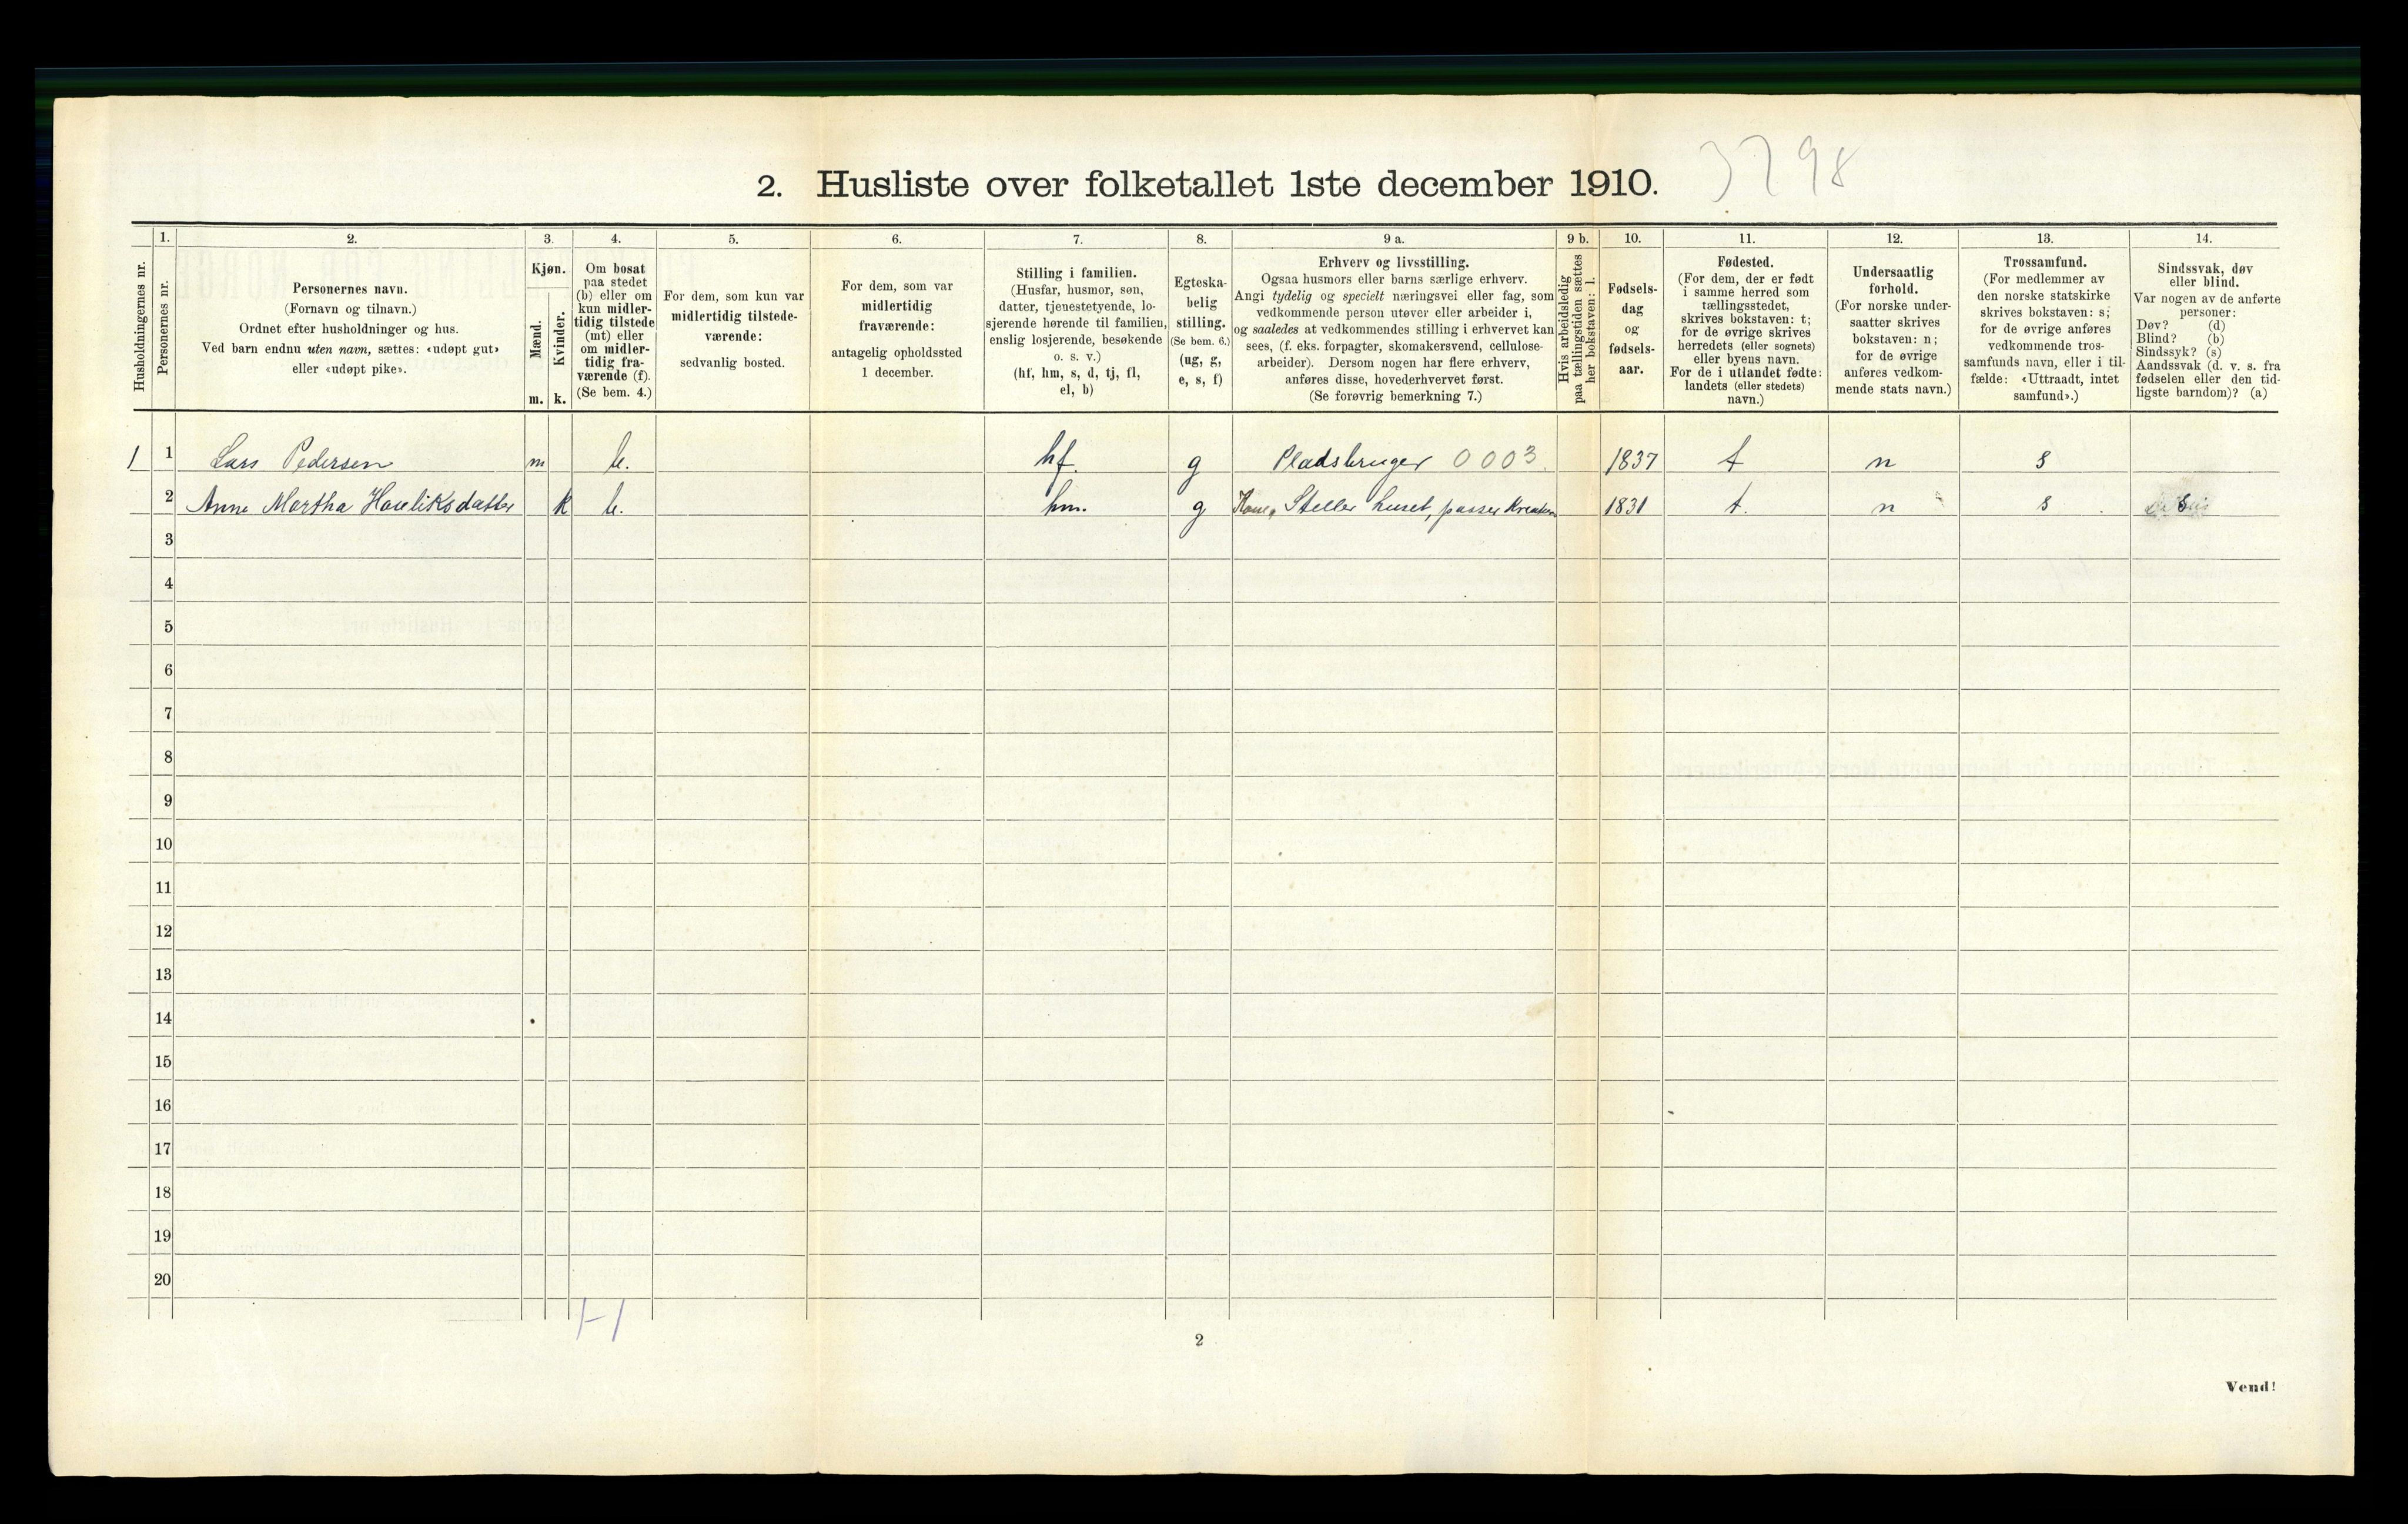 2. Husliste over folketallet 1ste december 1910.
3798
Husholdningernes nr.
1.
Personernes nr.
2.
Personernes navn.
(Fornavn og tilnavn.)
Ordnet efter husholdninger og hus.
Ved barn endnu uten navn, sættes: «udøpt gut»
eller «udøpt pike».
3.
Kjøn.
Mænd.
Kvinder.
m.
k.
4.
Om bosat
paa stedet
(b) eller om
kun midler-
tidig tilstede
(mt) eller
om midler-
tidig fra-
værende (f).
(Se bem. 4.)
5.
For dem, som kun var
midlertidig tilstede-
værende:
sedvanlig bosted.
6.
For dem, som var
midlertidig
fraværende:
antagelig opholdssted
1 december.
7.
Stilling i familien.
(Husfar, husmor, søn,
datter, tjenestetyende, lo-
sjerende hørende til familien,
enslig losjerende, besøkende
o. s. v.)
(hf, hm, s, d, tj, fl,
el, b)
8.
Egteska-
belig
stilling.
(Se bem. 6.)
(ug, g,
e, s, f)
9 a.
Erhverv og livsstilling.
Ogsaa husmors eller barns særlige erhverv.
Angi tydelig og specielt næringsvei eller fag, som
vedkommende person utøver eller arbeider i,
og saaledes at vedkommendes stilling i erhvervet kan
sees, (f. eks. forpagter, skomakersvend, cellulose-
arbeider). Dersom nogen har flere erhverv,
anføres disse, hovederhvervet først.
(Se forøvrig bemerkning 7.)
9 b.
Hvis arbeidsledig
paa tællingstiden sættes
her bokstaven: l.
10.
Fødsels-
dag
og
fødsels-
aar.
11.
Fødested.
(For dem, der er født
i samme herred som
tællingsstedet,
skrives bokstaven: t;
for de øvrige skrives
herredets (eller sognets)
eller byens navn.
For de i utlandet fødte:
landets (eller stedets)
navn.)
12.
Undersaatlig
forhold.
(For norske under-
saatter skrives
bokstaven: n;
for de øvrige
anføres vedkom-
mende stats navn.)
13.
Trossamfund.
(For medlemmer av
den norske statskirke
skrives bokstaven: s;
for de øvrige anføres
vedkommende tros-
samfunds navn, eller i til-
fælde: «Uttraadt, intet
samfund».)
14.
Sindssvak, døv
eller blind.
Var nogen av de anførte
personer:
Døv? (d)
Blind? (b)
Sindssyk? (s)
Aandssvak (d. v. s. fra
fødselen eller den tid-
ligste barndom)? (a)
1 1 Lars Pedersen m b. hf. g Pladsbruger 0003. 1837 t n s
2 Anne Martha k b. hm. g Kone, Steller huset, passer 1831 t. n s
3
4
5
6
7
8
9
10
11
12
13
14
15
16
17
18
19
20
1-1
2
Vend!